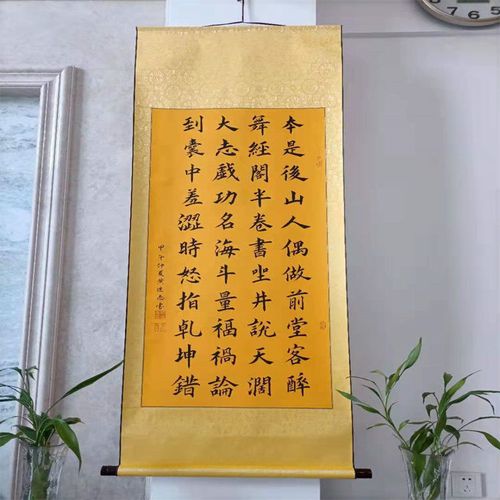 本是後山人偶做前堂客醉
舞經閣半卷書坐井說天濶
大志戲功名海斗量福禍論
到囊中羞澀時怒指乾坤錯
甲午仲夏